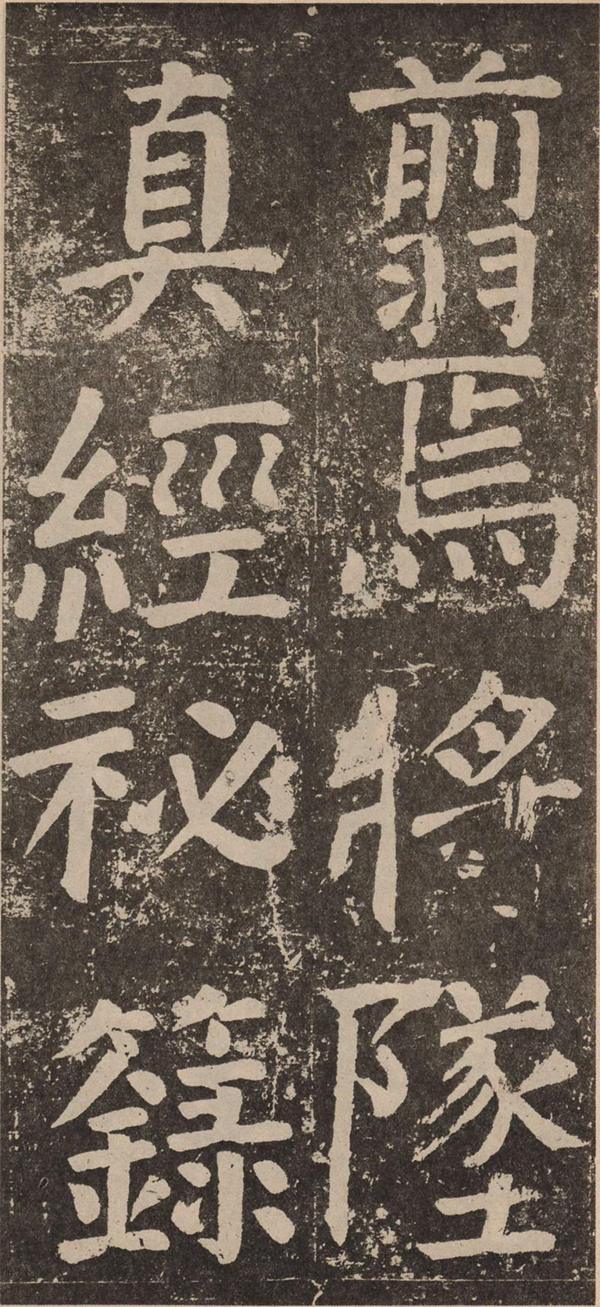 翦焉將墜
真經祕籙